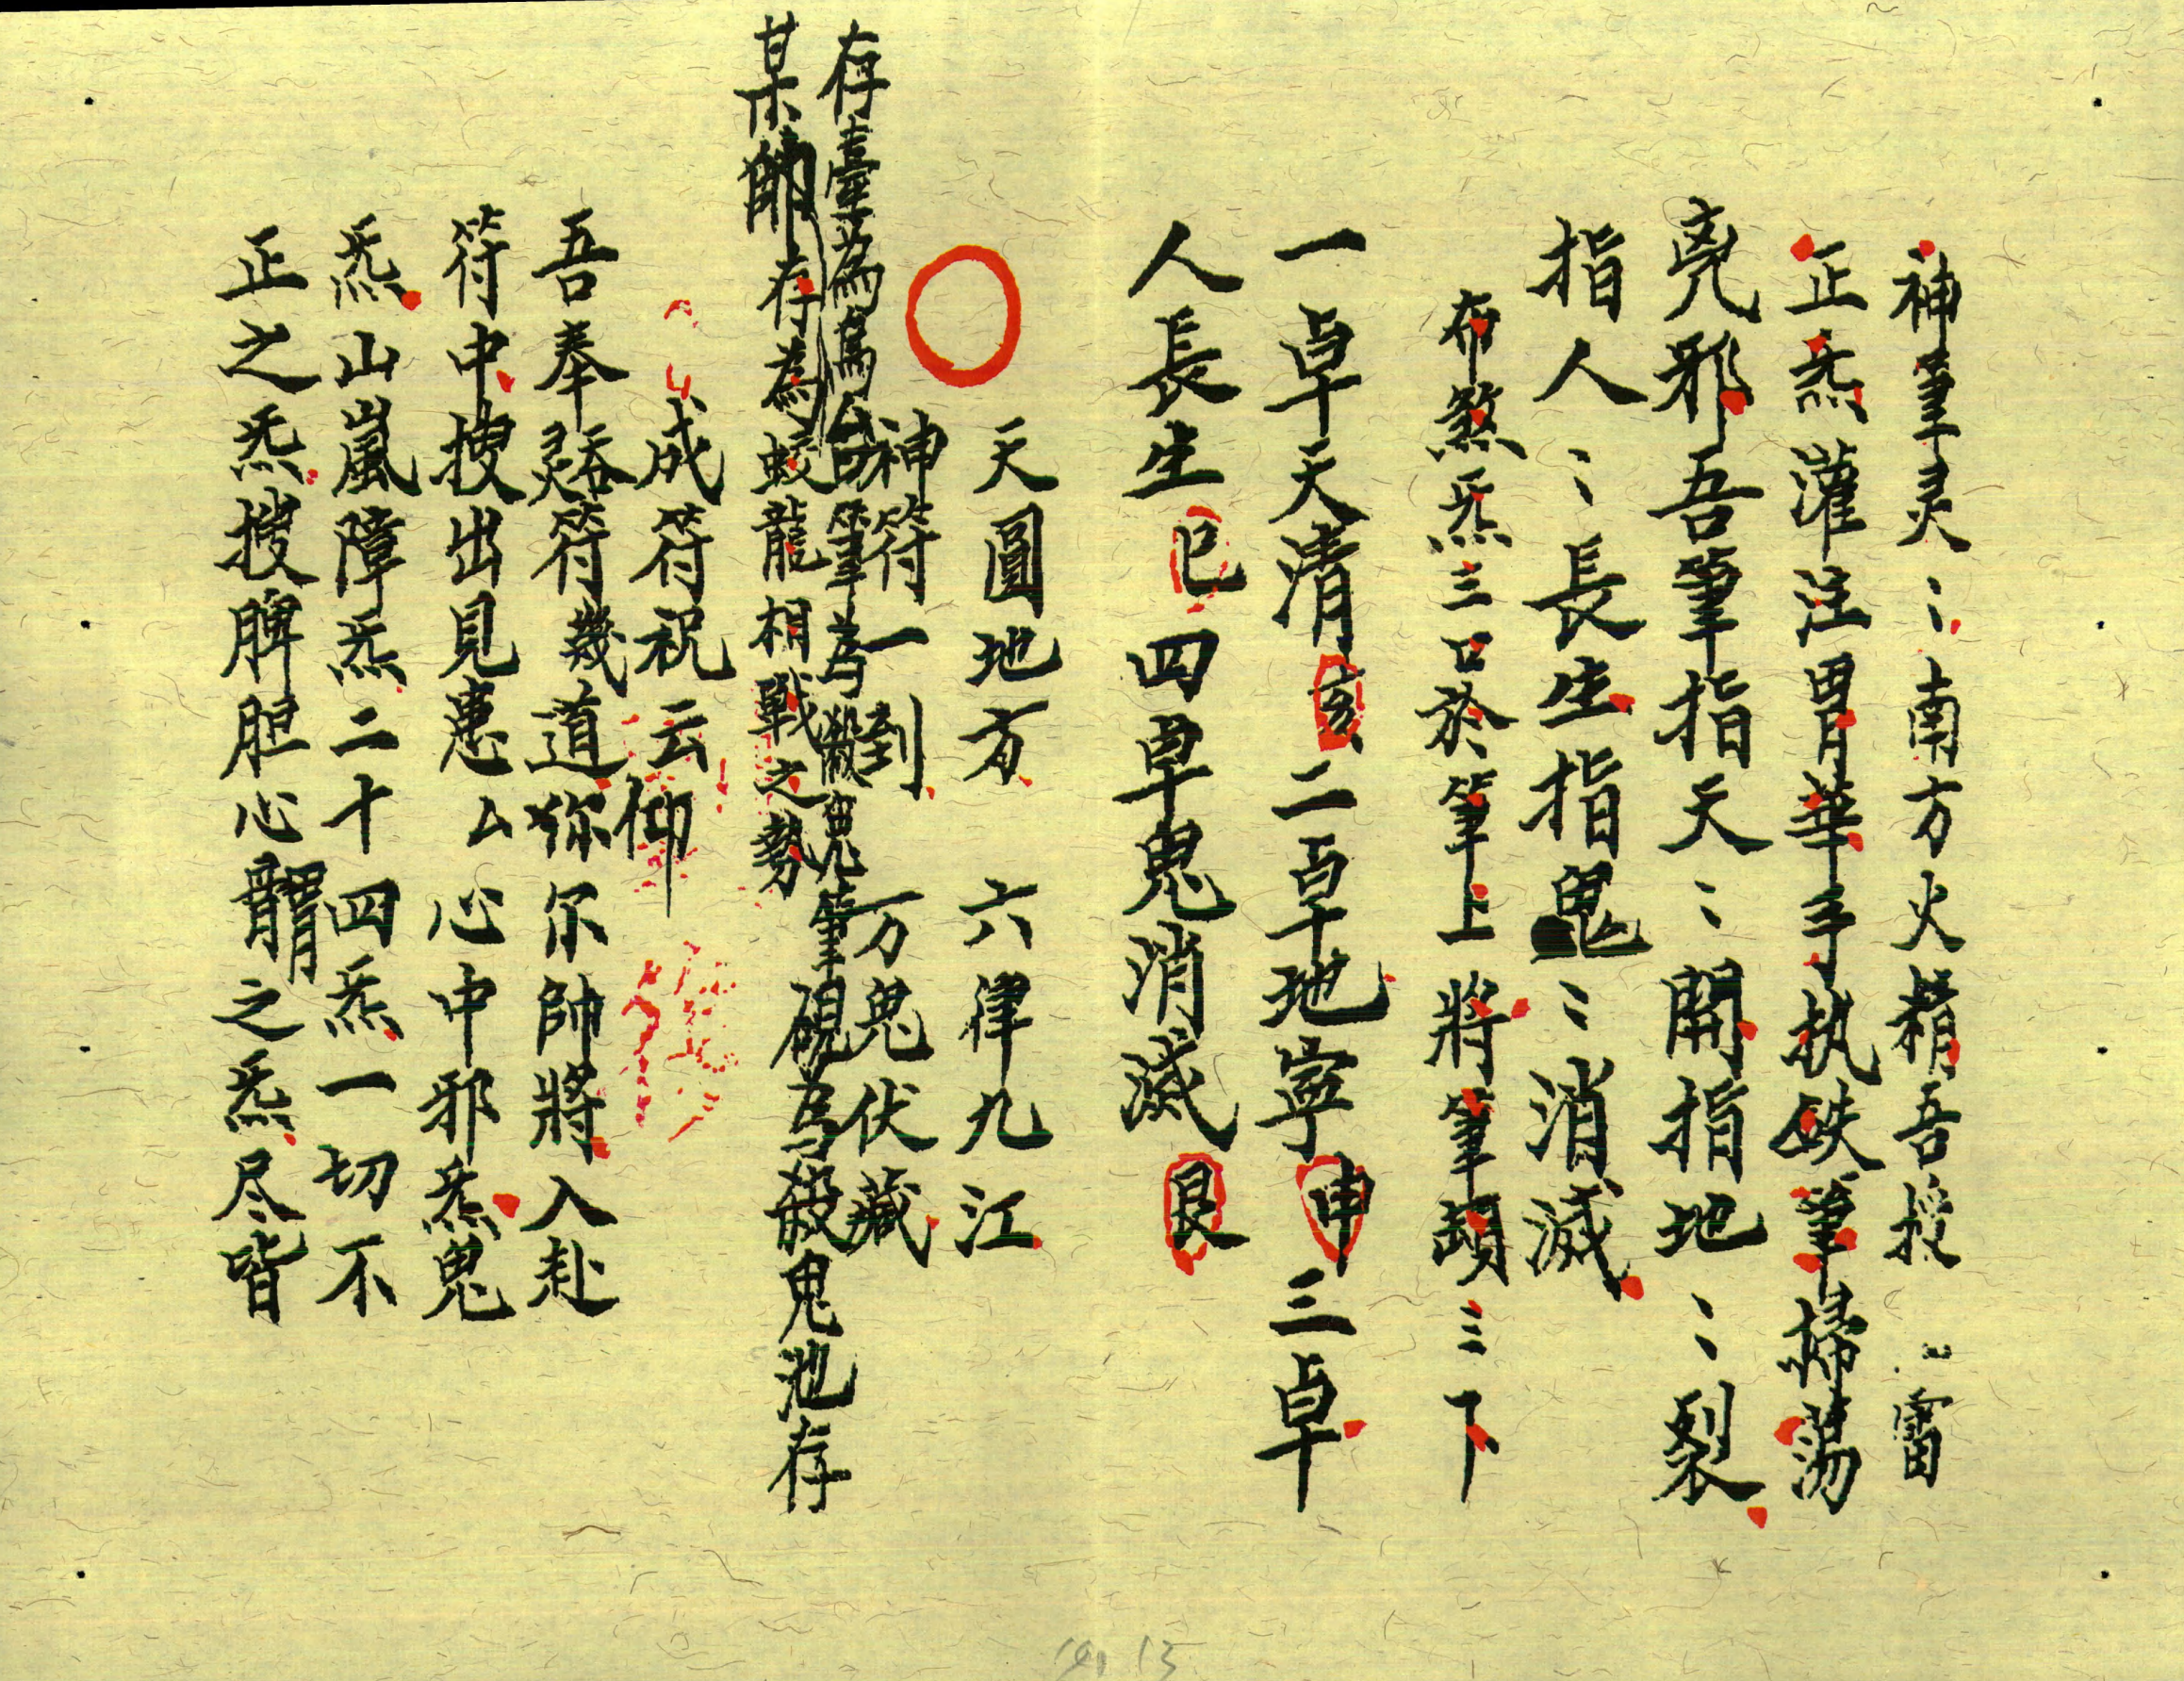 神筆灵〻南方火精吾授〻雷
正炁灌注胃華手执鉄筆掃蕩
兇邪吾筆指天〻開指地〻裂
指人〻長生指鬼〻消滅
布煞炁三口於筆上將筆頭三三下
一卓天清亥二卓地寧申三卓
人長生巳四卓鬼消滅艮
天圓地方 六律九江
神符一到 万鬼伏藏
存臺為 筆為 鬼筆硯為殺鬼池存
某帥存為蛟龍相戰之勢
成符祝云仰
吾奉 符幾道弥尔帥將入赴
符中搜出見患厶心中邪炁鬼
炁山嵐障炁二十四炁一切不
正之炁搜脾胆心 之炁尽皆
19, 13